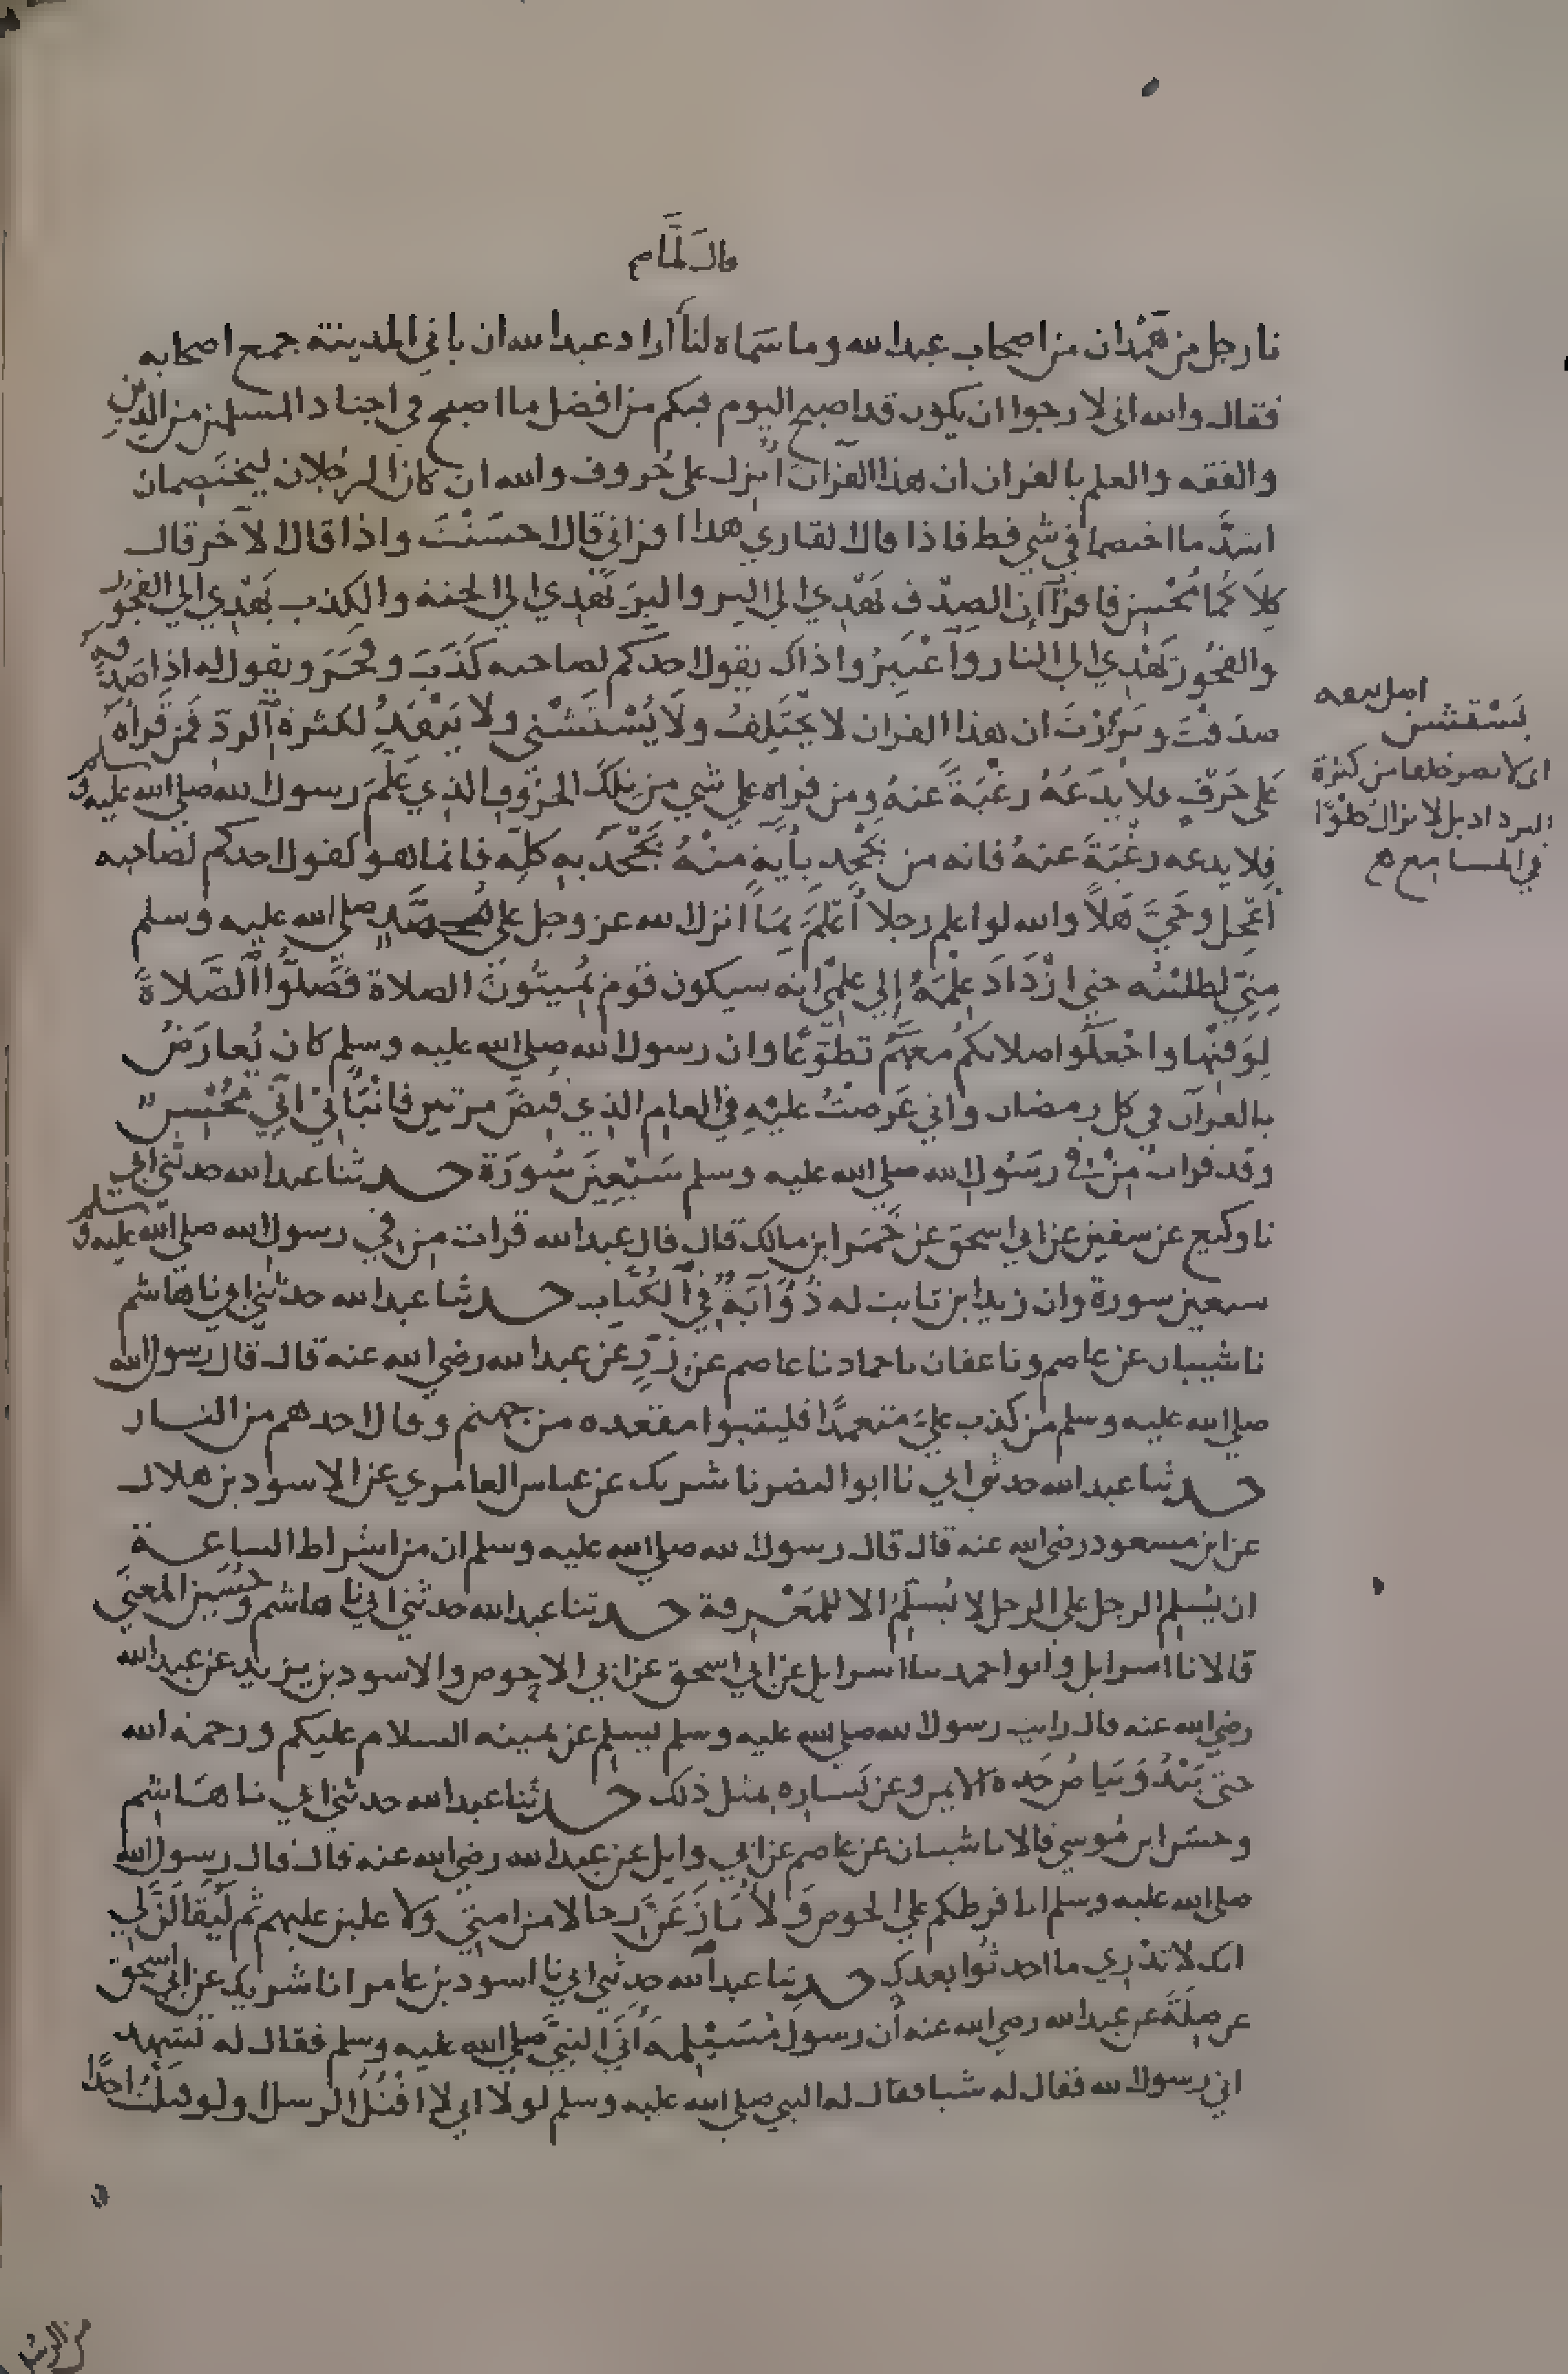 قال لما
نا رجل من همدان من اصحاب عبد الله وما سماه لنا اراد عبد الله ان ياتي المدينة جمع اصحابه
فقال والله اني لارجوا ان يكون قد اصبح اليوم فيكم من افضل ما اصبح في اجناد المسلمين من الدين
والفقه والعلم بالقران ان هذا القران انزل على حروف والله ان كان الرجلان ليختصمان
اشد ما اختصما في شي قط فاذا قال القاري هذا اقراني قال احسنت واذا قال الاخر قال
كلاكما محسن فاقرانا ان الصدق يهدي الى البر والبر يهدي الى الجنة والكذب يهدي الى الفجور
والفجور يهدي الى النار واعتبروا ذاك بقول احدكم لصاحبه كذب وفجر وبقوله اذا صدقه
صدقت وبررت ان هذا القران لا يختلف ولا يستشنى ولا يتفه لكثرة الرد فمن قراه
على حرف فلا يدعه رغبة عنه ومن قراه على شي من تلك الحروف الذي علم رسول الله صلى الله عليه وسلم
فلا يدعه رغبة عنه فانه من يجحد باية منه يجحد به كله فانما هو كقول احدكم لصاحبه
اعجل وحي هلا والله لو اعلم رجلا اعلم بما انزل الله عز وجل على محمد صلى الله عليه وسلم
مني لطلبته حتى ازداد علمه الى علمي انه سيكون قوم يميتون الصلاة فصلوا الصلاة
لوقتها واجعلوا صلاتكم معهم تطوعا وان رسول الله صلى الله عليه وسلم كان يعارض
بالقرآن في كل رمضان واني عرضت عليه في العام الذي قبض مرتين فانباني اني محسن
وقد قرات من في رسول الله صلى الله عليه وسلم سبعين سورة حدثنا عبد الله حدثني ابي
نا وكيع عن سفين عن ابي اسحق عن خمير ابن مالك قال قال عبد الله قرات من في رسول الله صلى الله عليه وسلم
سبعين سورة وان زيد ابن ثابت له ذؤابة في الكتاب حدثنا عبد الله حدثني ابي نا هاشم
نا شيبان عن عاصم ونا عفان نا حماد نا عاصم عن زر عن عبد الله رضي الله عنه قال قال رسول الله
صلى الله عليه وسلم من كذب علي متعمدا فليتبوا مقعده من جهنم وقال احدهم من النار
حدثنا عبد الله حدثني ابي نا ابو النضر نا شريك عن عياش العامري عن الاسود بن هلال
عن ابن مسعود رضي الله عنه قال قال رسول الله صلى الله عليه وسلم ان من اشراط الساعة
ان يسلم الرجل على الرجل لا يسلم الا للمعرفة حدثنا عبد الله حدثني ابي نا هاشم وحسين المعنى
قالا نا اسرايل وابو احمد نا اسرايل عن ابي اسحق عن ابي الاحوص والاسود بن يزيد عن عبد الله
رضي الله عنه قال رايت رسول الله صلى الله عليه وسلم يسلم عن يمينه السلام عليكم ورحمة الله
حتى يبدو بياض خده الايمن وعن يساره بمثل ذلك حدثنا عبد الله حدثني ابي نا هاشم
وحسن ابن موسى قالا نا شيبان عن عاصم عن ابي وايل عن عبد الله رضي الله عنه قال قال رسول الله
صلى الله عليه وسلم انا فرطكم على الحوض ولانازعن رجالا من امتي ولاغلبن عليهم ثم ليقالن لي
انك لا تدري ما احدثوا بعدك حدثنا عبد الله حدثني ابي نا اسود بن عامر انا شريك عن ابي اسحق
عن صلة عن عبد الله رضي الله عنه ان رسول مسيلمة اتى النبي صلى الله عليه وسلم فقال له تشهد
اني رسول الله فقال له شيا فقال له النبي صلى الله عليه وسلم لولا اني لا اقتل الرسل او لو قتلت احدا
من الرسل
يستشن
اي لا يصير خلقا من كثرة
الترداد بل لا يزال طوا
في المسامع